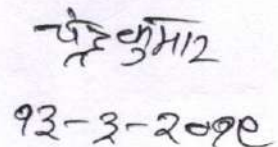 चंद्रकुमार
१३-३-२०१९